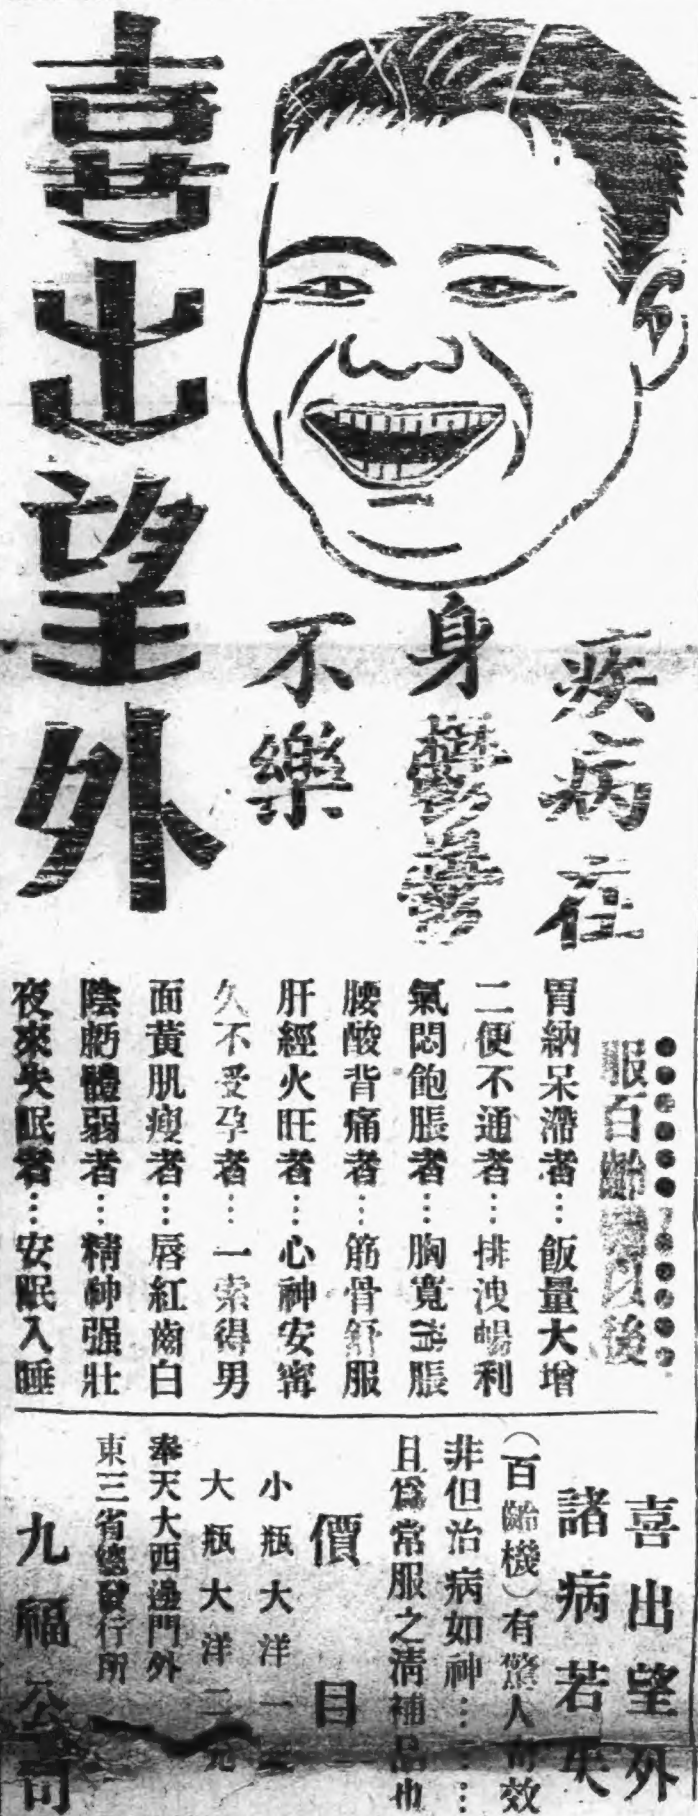 喜出望外
疾病在
身鬱鬱
不樂
服百齡機以後
胃納呆滯者…飯量大增
二便不通者…排洩暢利
氣悶飽脹者…胸寬 脹
腰酸背痛者…筋骨舒服
肝經火旺者…心神安寗
久不受孕者…一索得男
面黃肌瘦者…唇紅齒白
陰虧體弱者…精神强壯
夜來失眠者…安眠入睡
喜出望外
諸病若失
(百齡機)有驚人奇效
非但治病如神……
且爲常服之淸補品也
價目
小瓶大洋一
大瓶大洋二元
奉天大西邊門外
東三省總發行所
九福公司